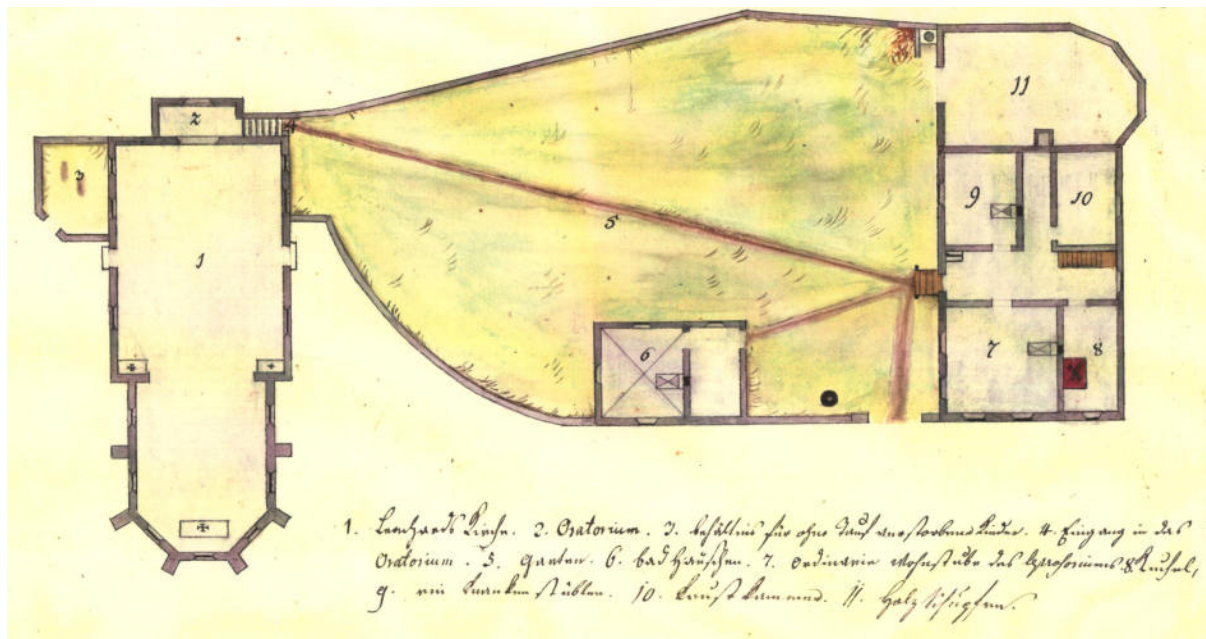 2
3
11
9
10
1
5
6
7
8
1. Leonhards Kirche. 2. Oratorium. 3. behältnis für ohne Tauf verstorbene Kinder. 4. Eingang in das
Oratorium. 5. Garten. 6. bad Häuschen. 7. ordinarie Wohnstube des 8. Kuchel,
9. ein Krankenstüblen. 10. Kammer. 11. Holz Schupfen.